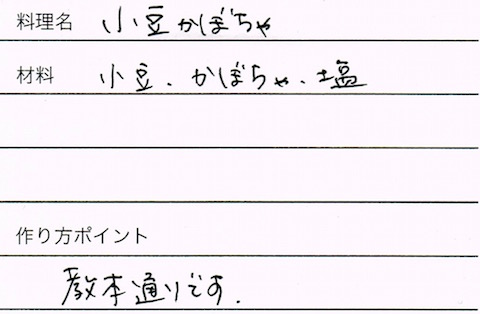 料理名 小豆かぼちゃ
材料 小豆、かぼちゃ、塩
作り方ポイント
教本通りです.